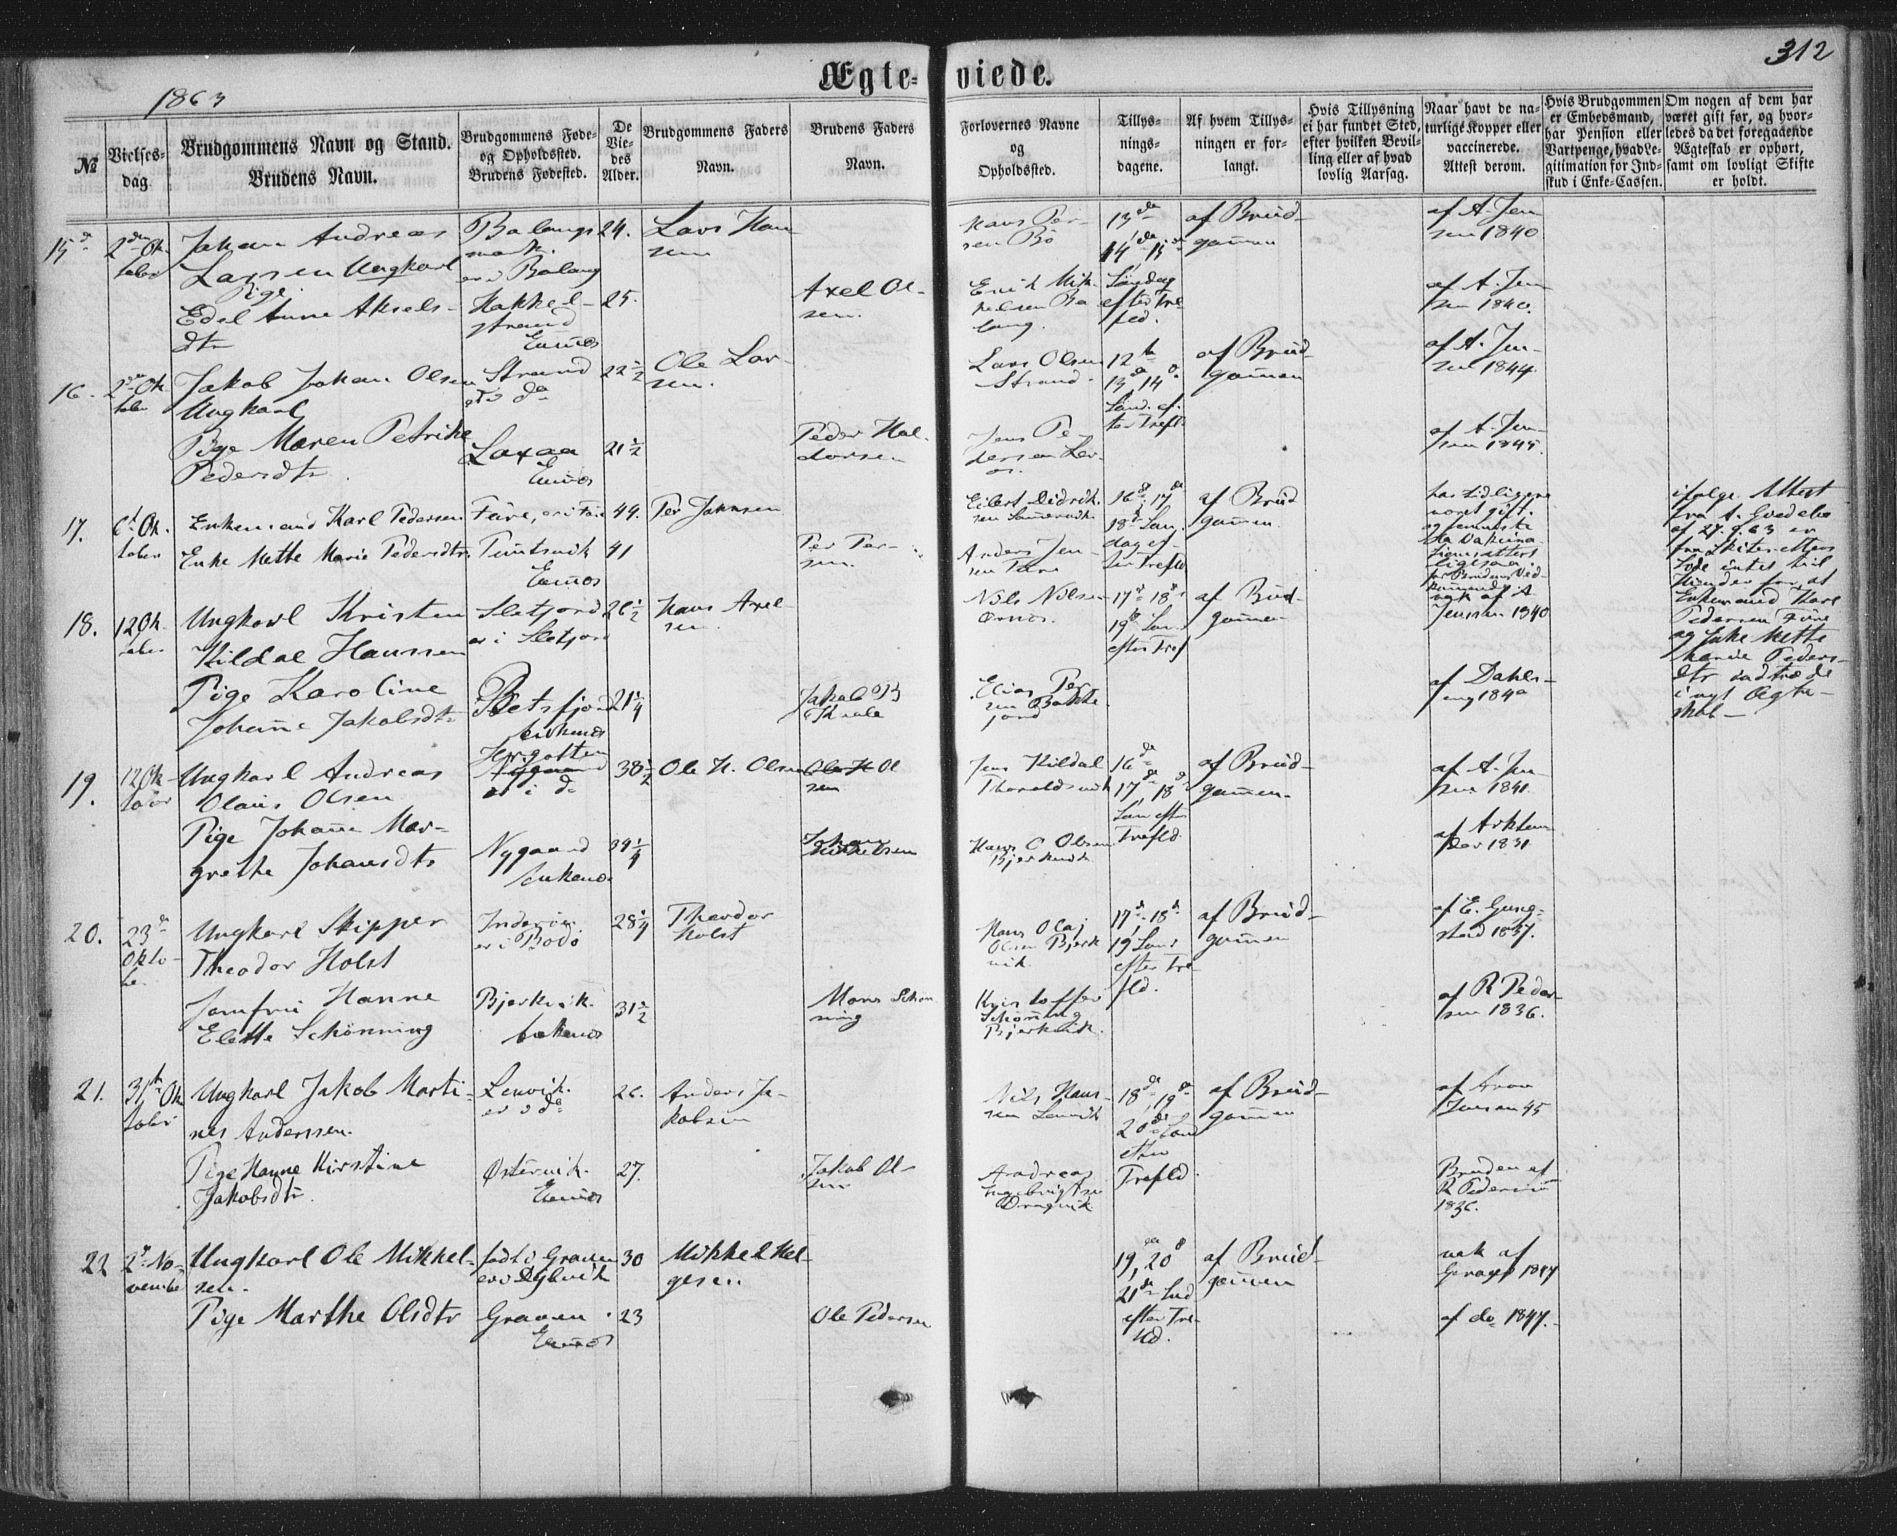 312
Ægteviede.
1863
№
Vielses-
dag.
Brudgommens Navn og Stand.
Brudens Navn.
Brudgommens Føde-
og Opholdssted.
Brudens Fødested.
De
Vie-
des
Alder.
Brudgommens Faders
Navn.
Brudens Faders
Navn.
Forlovernes Navne
og
Opholdssted.
Tillys-
nings-
dagene.
Af hvem Tillys-
ningen er for-
langt.
Hvis Tillysning
ei har fundet Sted,
efter hvilken Bevil-
ling eller af hvad
lovlig Aarsag.
Naar havt de na-
turlige Kopper eller
vaccinerede.
Attest derom.
Hvis Brudgommen
er Embedsmand,
har Pension eller
Vartpenge, hvad Le-
gitimation for Ind-
skud i Enke-Cassen.
Om nogen af dem har
været gift før, og hvor-
ledes da det foregaaende
Ægteskab er ophørt,
samt om lovligt Skifte
er holdt.
15
2den Ok
tober
Johan Andreas
Larsen Ungkarl
Pige
Edel Anne Aksels-
dtr
Balangs
mark.
er i Balang
Hakkel-
strand
Evenes
24.
25.
Lars Han
sen
Axel Ol-
sen.
Hans Per-
sen Bø
Erik Mik-
kelsen Ba
lang.
13de
14de 15de
Søndag
efter Tre-
fed.
af Brud-
gommen
af A. Jen
sen 1840
af A. Jen
sen 1840.
16.
2den Ok
tober
Jakob Johan Olsen
Ungkarl
Pige Maren Petrike
Pedersdtr.
Strand
er i do
Laxaa
Evenes
22 1/2
21 1/2
Ole Lar-
sen.
Peder Hal-
dorsen
Lars Olsen
Strand.
Jens Pe-
dersen
12te
13de, 14de
Sønd. ef-
ter Trefld.
af Brud-
gommen
af A. Jen-
sen 1844.
af A. Jen-
sen 1845.
17.
6te Ok-
tober
Enkemand Karl Pedersen
Enke Mette Marie Pedersdtr.
Evenes
44.
41
Per Johnsen
Per Per-
sen.
Eilert Didrik-
sen
Anders Jen-
sen
16de, 17de
18de Søn-
dag ef-
ter Trefld
af Brud
gommen.
har tidligere
været gift.
ligesaa.
vak af A
Jensen 1840
ifølge Attest
fra A.
af 27. 9. 63 er
fra Skifterettens
Side intet til
Hinder for, at
Enkemand Karl
Pedersen
og Enke Mette
Marie Peders-
dtr indtræde
i nyt Ægte-
skab -
18.
12 Ok-
tober
Ungkarl Kristen
Kildal Hanssen
Pige Karoline
Johanne Jakobsdtr
er i
Ankenes
26 1/2
21 1/4
Hans Axel-
sen.
Jakob
Nils Nilsen
Ornes.
Elias Per
sen
17de 18de
19de Søn.
efter Tref
af Brud-
gommen
af Dahls-
eng 1840
19.
12 Ok-
tober
Ungkarl Andreas
Olaus Olsen
Pige Johanne Mar-
grethe Johansdtr
er i do
Nygaard
Ankenes
38 1/2
39 1/4
Ole H. Olsen
Ole H Ol
sen
Johan
Mikkelsen
Jens Kildal
Thoraldsvik
Hans O Olsen
Bjerkvik
16de
17de, 18de
Søn efter
Trefld.
af Brud-
gommen.
af A. Jen-
sen 1841.
af
1831.
20.
23de
Okto-
ber
Ungkarl Skipper
Theodor Holst
Jomfru Hanne
Elette Schönning
Inderøen
er i Bodø
Bjerkvik.
Ankenes
28 1/4
31 1/2
Theodor
Holst
Mons Schøn
ning
Hans Olaj
Olsen Bjerk
vik.
Kristoffer
Schönning
Bjerkvik.
17de, 18de
19 Sønd
efter Tre-
fld.
af Brud-
gommen
af E. Gung-
stad 1837.
af R Peder-
sen 1836.
21.
31te Ok
tober
Ungkarl Jakob Marti-
nus Anderssen.
Pige Hanne Kirstine
Jakobsdtr.
Lenvik.
er i do
Østervik.
Evenes
26.
27.
Anders Ja-
kobsen
Jakob Ol-
sen
Nils Hans-
sen Lenvik
Andreas
Ingebrigtsen
18de, 19de
20de Sønd
efter
Trefld.
af Brud-
gommen
af
Jensen 45
Bruden af
R Pedersen
1836.
22
2de No-
vember
Ungkarl Ole Mikkel-
sen.
Pige Marthe Olsdtr
født i Graven
er i Dybvik
Graven.
Evenes
30
23
Mikkel Hel-
gesen
Ole Pedersen
19, 20de
21de Sød
efter Tre-
fld.
af Brud-
gommen
vak af
1847
af do 1847.